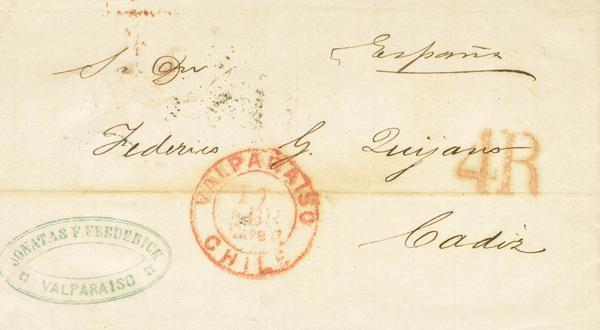 España
Sr Dn
Federico G. Quijano
4R
Cadiz
VALPARAISO
CHILE
JONATAS F. FREDERICK
VALPARAISO